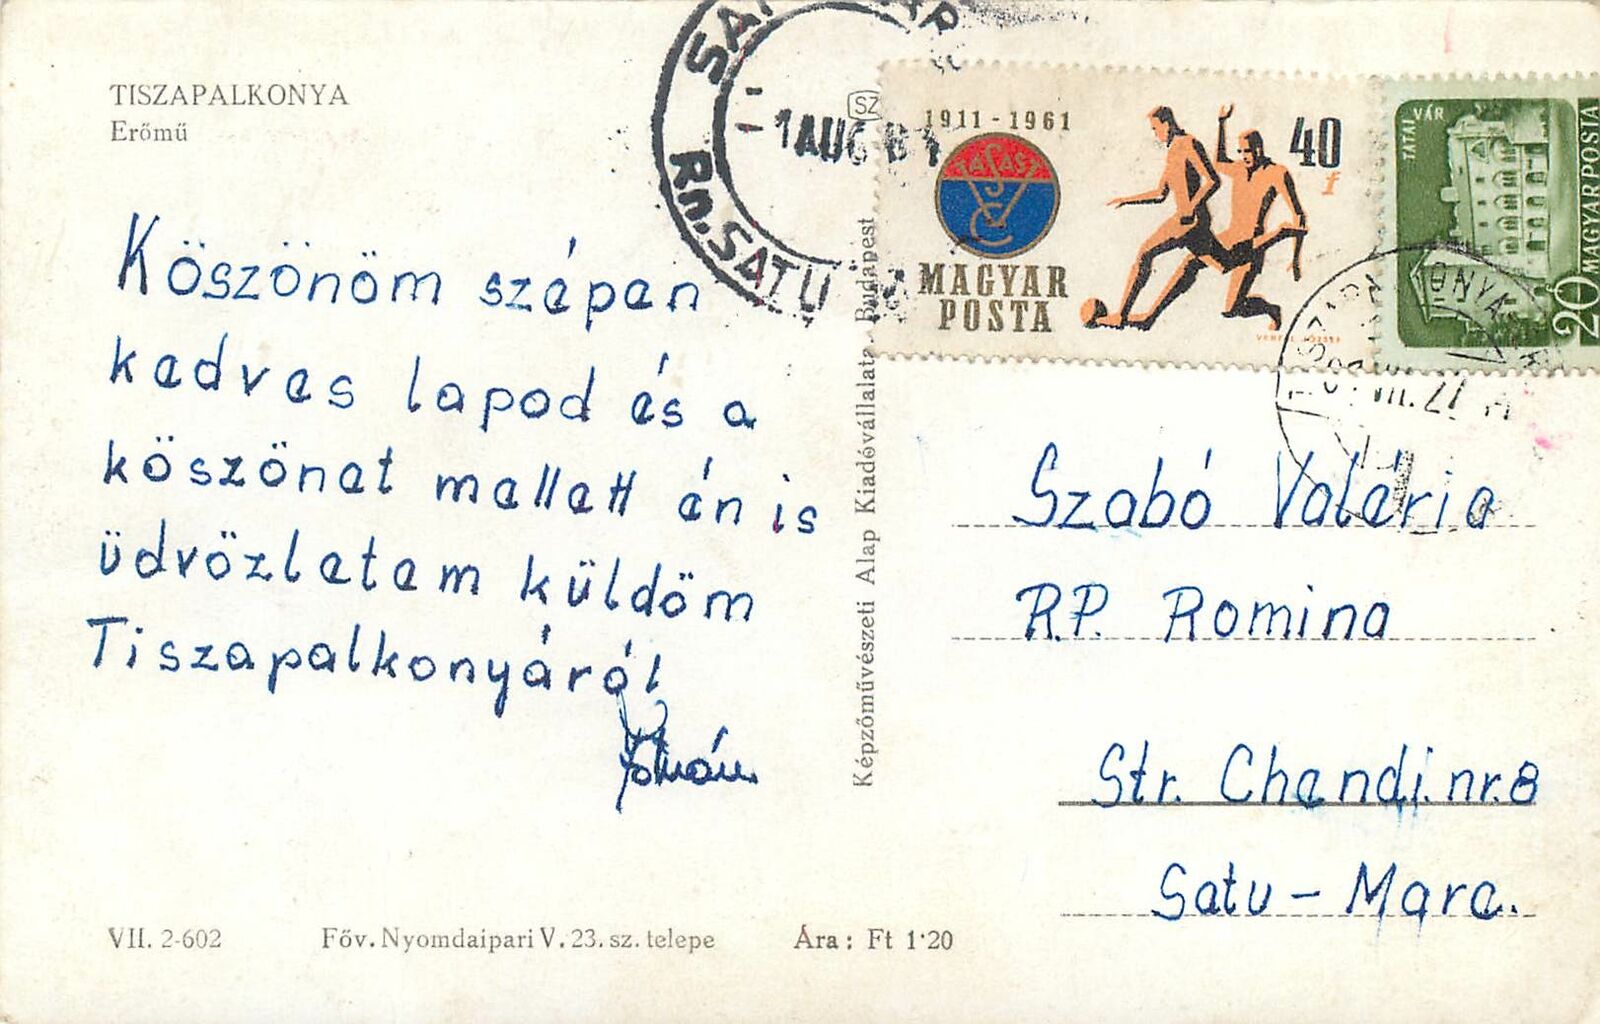 TISZAPALKONYA
Erőmű
Köszönöm szépen
kedves lapod és a
köszönet mellett én is
üdvözletem küldöm
Tiszapalkonyáról
István
VII. 2-602 Főv. Nyomdaipari V. 23. sz. telepe Ára: Ft 1·20
Képzőművészeti Alap Kiadóvállalata - Budapest
SZ
Rn. SATU
1 AUG
1911 - 1961
VASAS
SC
40 f
MAGYAR
POSTA
TATAI VÁR
MAGYAR POSTA
20
VII. 27
Szabó Valéria
R.P. Romina
Str. Chendi. nr. 8
Satu - Mare.